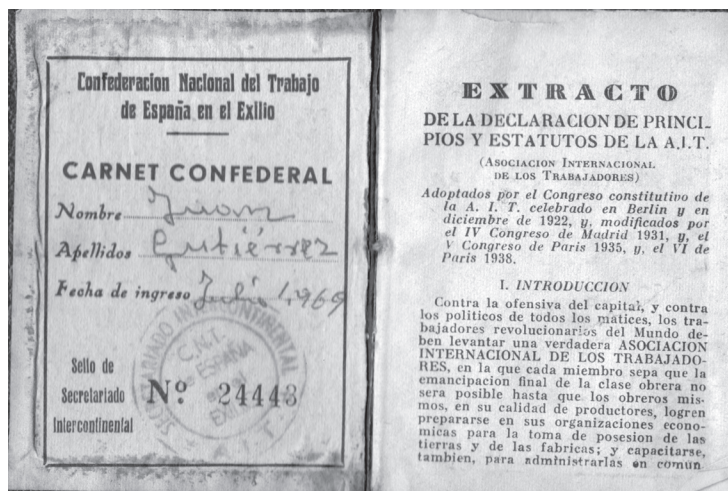 Confederacion Nacional del Trabajo
de España en el Exilio
CARNET CONFEDERAL
Nombre Juan
Apellidos Gutiérrez
Fecha de ingreso Julio 1969
SECRETARIADO INTERCONTINENTAL
C.N.T.
ESPAÑA
EXILIO
Sello de
Secretariado
Intercontinental
Nº 24443
EXTRACTO
DE LA DECLARACION DE PRINCI-
PIOS Y ESTATUTOS DE LA A.I.T.
(ASOCIACION INTERNACIONAL
DE LOS TRABAJADORES)
Adoptados por el Congreso constitutivo de
la A. I. T. celebrado en Berlin y en
diciembre de 1922, y, modificados por
el IV Congreso de Madrid 1931, y, el
V Congreso de Paris 1935, y, el VI de
Paris 1938.
I. INTRODUCCION
Contra la ofensiva del capital, y contra
los politicos de todos los matices, los tra-
bajadores revolucionarios del Mundo de-
ben levantar una verdadera ASOCIACION
INTERNACIONAL DE LOS TRABAJADO-
RES, en la que cada miembro sepa que la
emancipacion final de la clase obrera no
sera posible hasta que los obreros mis-
mos, en su calidad de productores, logren
prepararse en sus organizaciones econo-
micas para la toma de posesion de las
tierras y de las fabricas; y capacitarse,
tambien, para administrarlas en comun